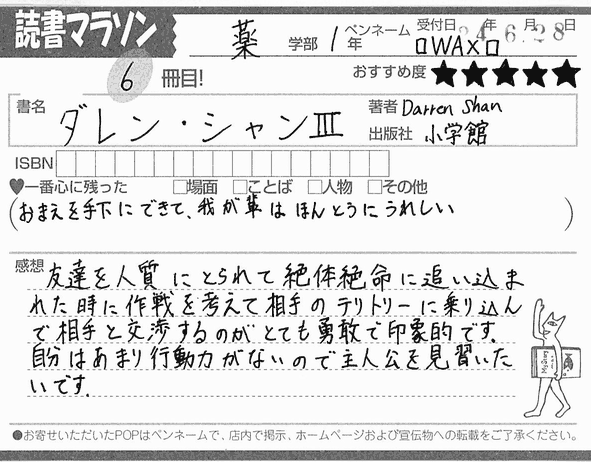 読書マラソン
薬 学部 1年 ペンネーム 受付日 年 月 日
04 6.28
□WAX□
6 冊目!
おすすめ度 ★★★★★
書名 ダレン・シャンⅢ
著者 Darren Shan
出版社 小学館
ISBN
♥一番心に残った □場面 □ことば □人物 □その他
(おまえを手下にできて、我が輩はほんとうにうれしい)
感想 友達を人質にとられて絶体絶命に追い込ま
れた時に作戦を考えて相手のテリトリーに乗り込ん
で相手と交渉するのがとても勇敢で印象的です。
自分はあまり行動力がないので主人公を見習いた
いです。
●お寄せいただいたPOPはペンネームで、店内で掲示、ホームページおよび宣伝物への転載をご了承ください。